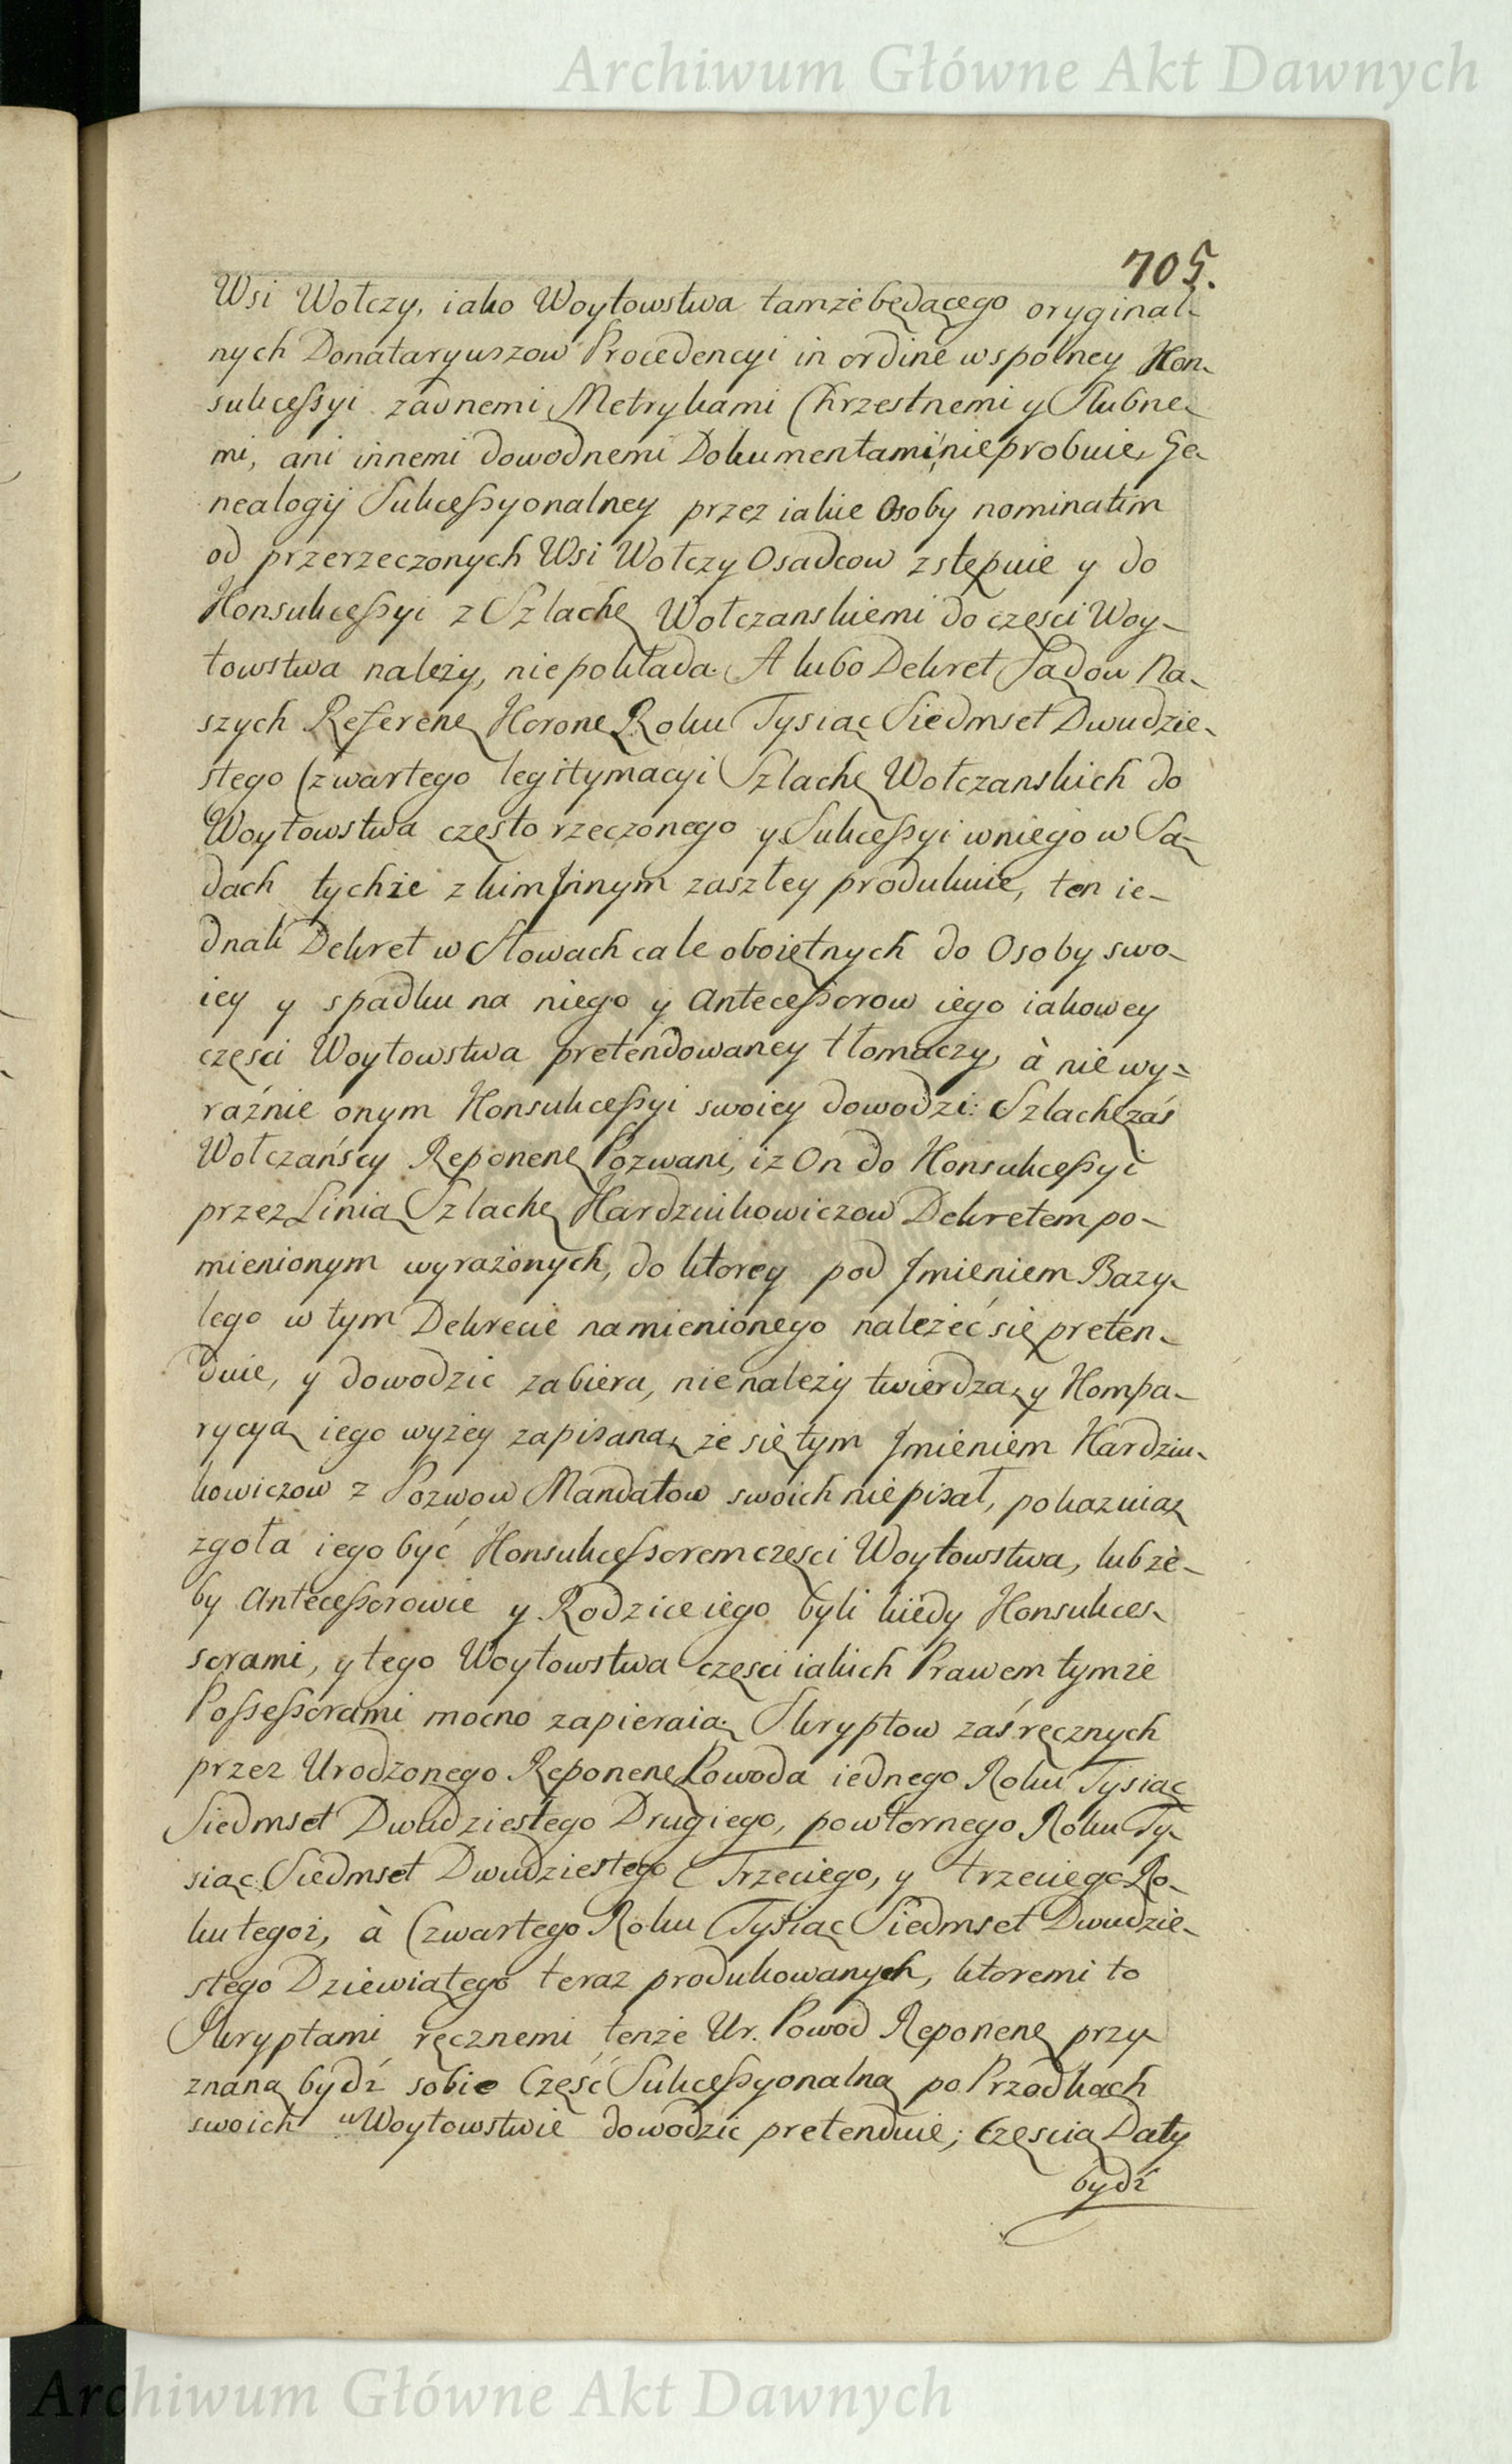 Archiwum Główne Akt Dawnych
705.
Wsi Wołczy, iako Woytowstwa tamże będącego oryginal-
nych Donataryuszow Procedencyi in ordine wspolney Kon-
sukcessyi żadnemi Metrykami Chrzestnemi y Slubne-
mi, ani innemi dowodnemi Dokumentami, nie probuie, Ge-
nealogij Sukcessyonalney przez iakie Osoby nominatim
od przerzeczonych Wsi Wołczy Osadcow zstępuie y do
Konsukcessyi z Szlachę Wołczanskiemi do części Woy-
towstwa należy, nie pokłada. A lubo Dekret Sądow Na-
szych Referenc Koronę Roku Tysiąc Siedmset Dwudzie-
stego Czwartego legitymacyi Szlachę Wołczanskich do
Woytowstwa często rzeczonego y Sukcessyi w niego w Są-
dach tychże z kim Innym zaszłey produkuie, ten ie-
dnak Dekret w Słowach cale oboiętnych do Osoby swo-
iey y spadku na niego y Antecessorow iego iakowey
części Woytowstwa pretendowaney tłomaczy, à nie wy-
raźnie onym Konsukcessyi swoiey dowodzi: Szlachę zaś
Wołczańscy Reponenę Pozwani, iż On do Konsukcessyi
przez Linią Szlachę Hardziukowiczow Dekretem po-
mienionym wyrażonych, do ktorey pod Imieniem Bazy-
lego w tym Dekrecie namienionego należeć się preten-
duie, y dowodzic zabiera, nie należy twierdzą, y Kompa-
rycyą iego wyżey zapisaną, że się tym Imieniem Hardziu-
kowiczow z Pozwow Mandatow swoich nie pisał, pokazuią,
zgoła iego być Konsukcessorem części Woytowstwa, lub że-
by Antecessorowie y Rodzice iego byli kiedy Konsukces-
sorami, y tego Woytowstwa części iakich Prawem tymże
Possessorami mocno zapieraią. Skryptow zaś ręcznych
przez Urodzonego Reponenę Powoda iednego Roku Tysiąc
Siedmset Dwudziestego Drugiego, powtornego Roku Ty-
siąc Siedmset Dwudziestego Trzeciego, y trzeciego Ro-
ku tegoż, à Czwartego Roku Tysiąc Siedmset Dwudzie-
stego Dziewiątego teraz produkowanych, ktoremi to
Skryptami ręcznemi tenże Ur. Powod Reponenę przy-
znaną bydź sobie Część Sukcessyonalną po Przodkach
swoich w Woytowstwie dowodzic pretenduie; Częścią Daty
bydź
Archiwum Główne Akt Dawnych